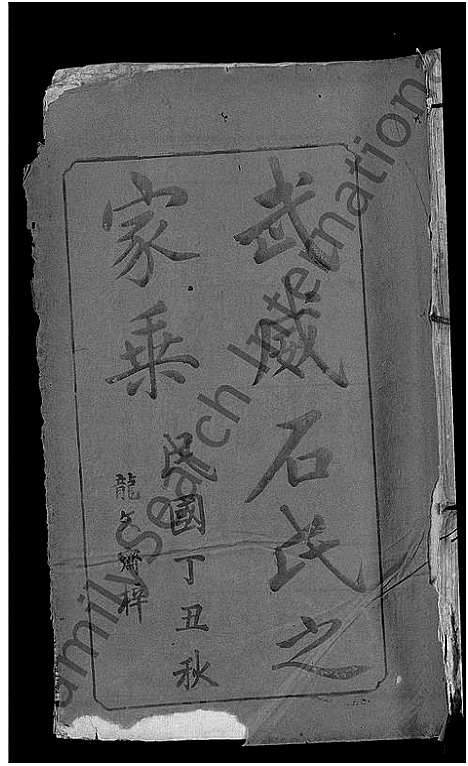 武威石氏之
家乘
民國丁丑秋
龍文 梓
Family Search International